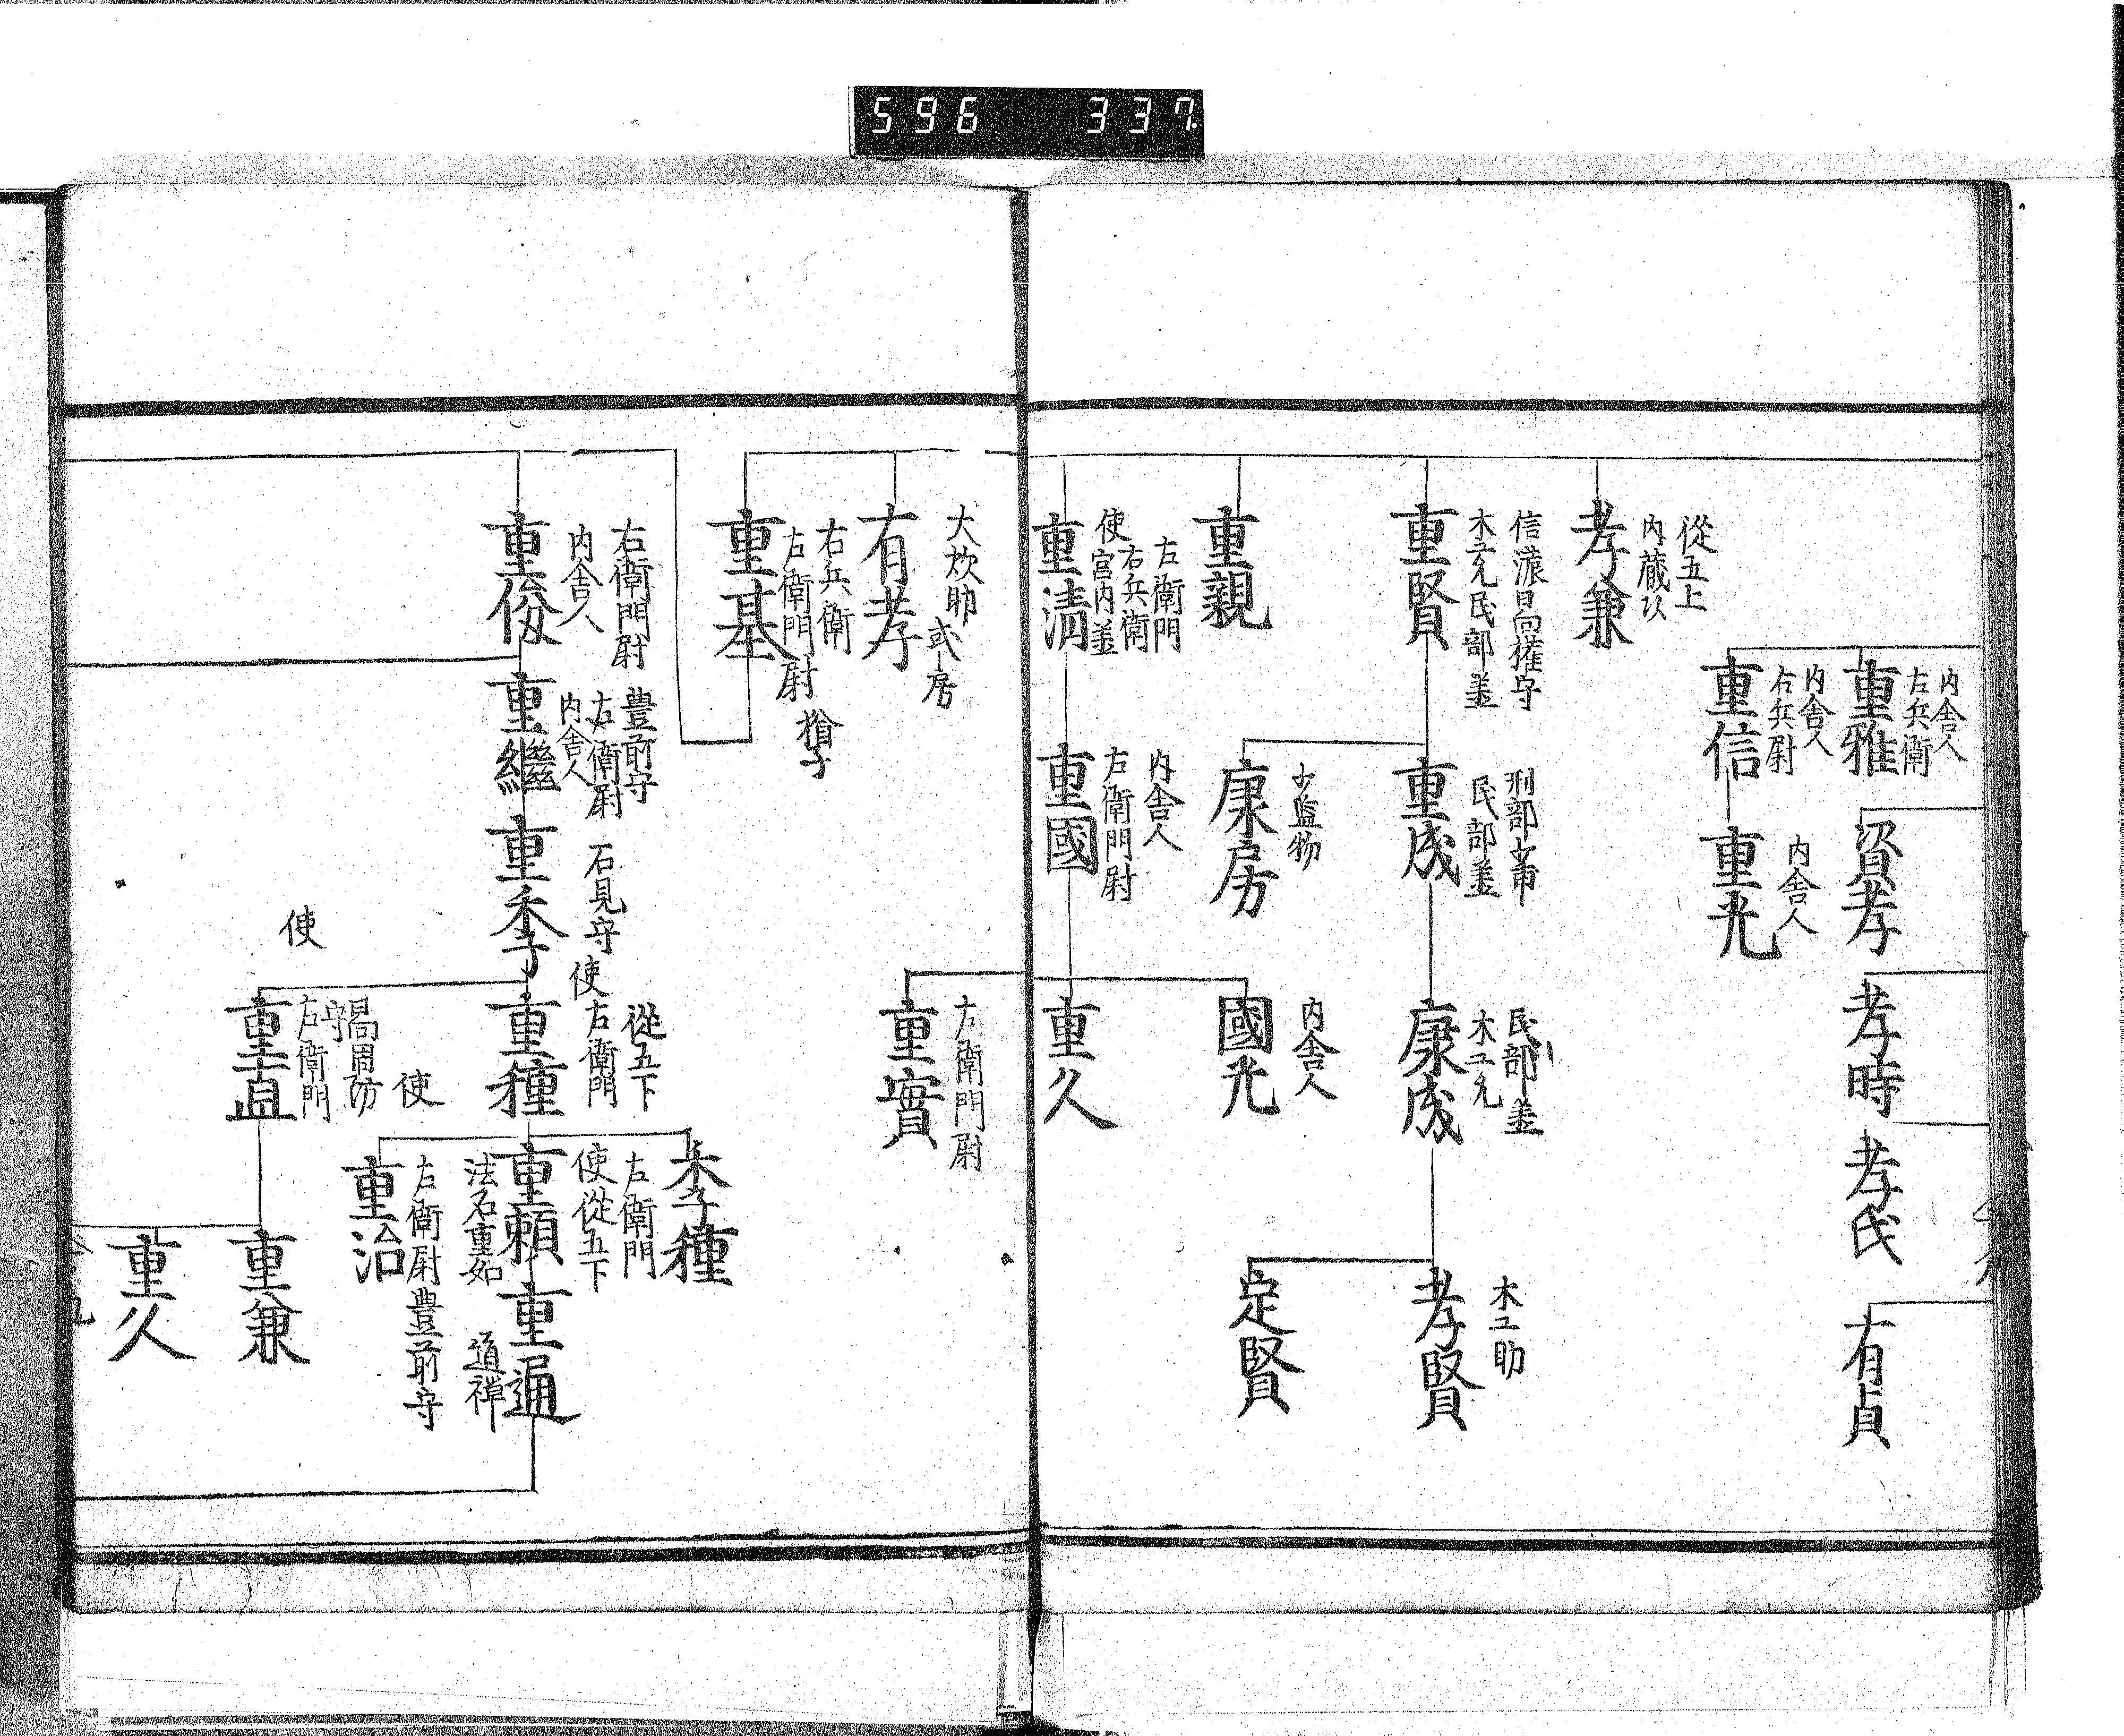 596 337
内舎人
左兵衛
重雅
内舎人
右兵尉
重信
資孝
内舎人
重光
孝時
孝氏
有貞
從五上
内蔵以
孝兼
信濃日向權守
木工允民部丞
重賢
刑部少甫
民部丞
重成
民部丞
木工允
康成
木工助
孝賢
定賢
重親
少監物
康房
内舎人
國光
左衛門
右兵衛
使宮内丞
重清
内舎人
左衛門尉
重國
重久
左衛門尉
重實
大炊助
或房
有孝
右兵衛
左衛門尉
重基
右衛門尉
内舎人
重俊
豊前守
右衛尉
内舎人
重繼
石見守
重季
從五下
使
右衛門
重種
季種
左衛門
使從五下
重頼
法名重如
重通
道禅
使
左衛尉豊前守
重治
使
周防
守
左衛門
重直
重兼
重久